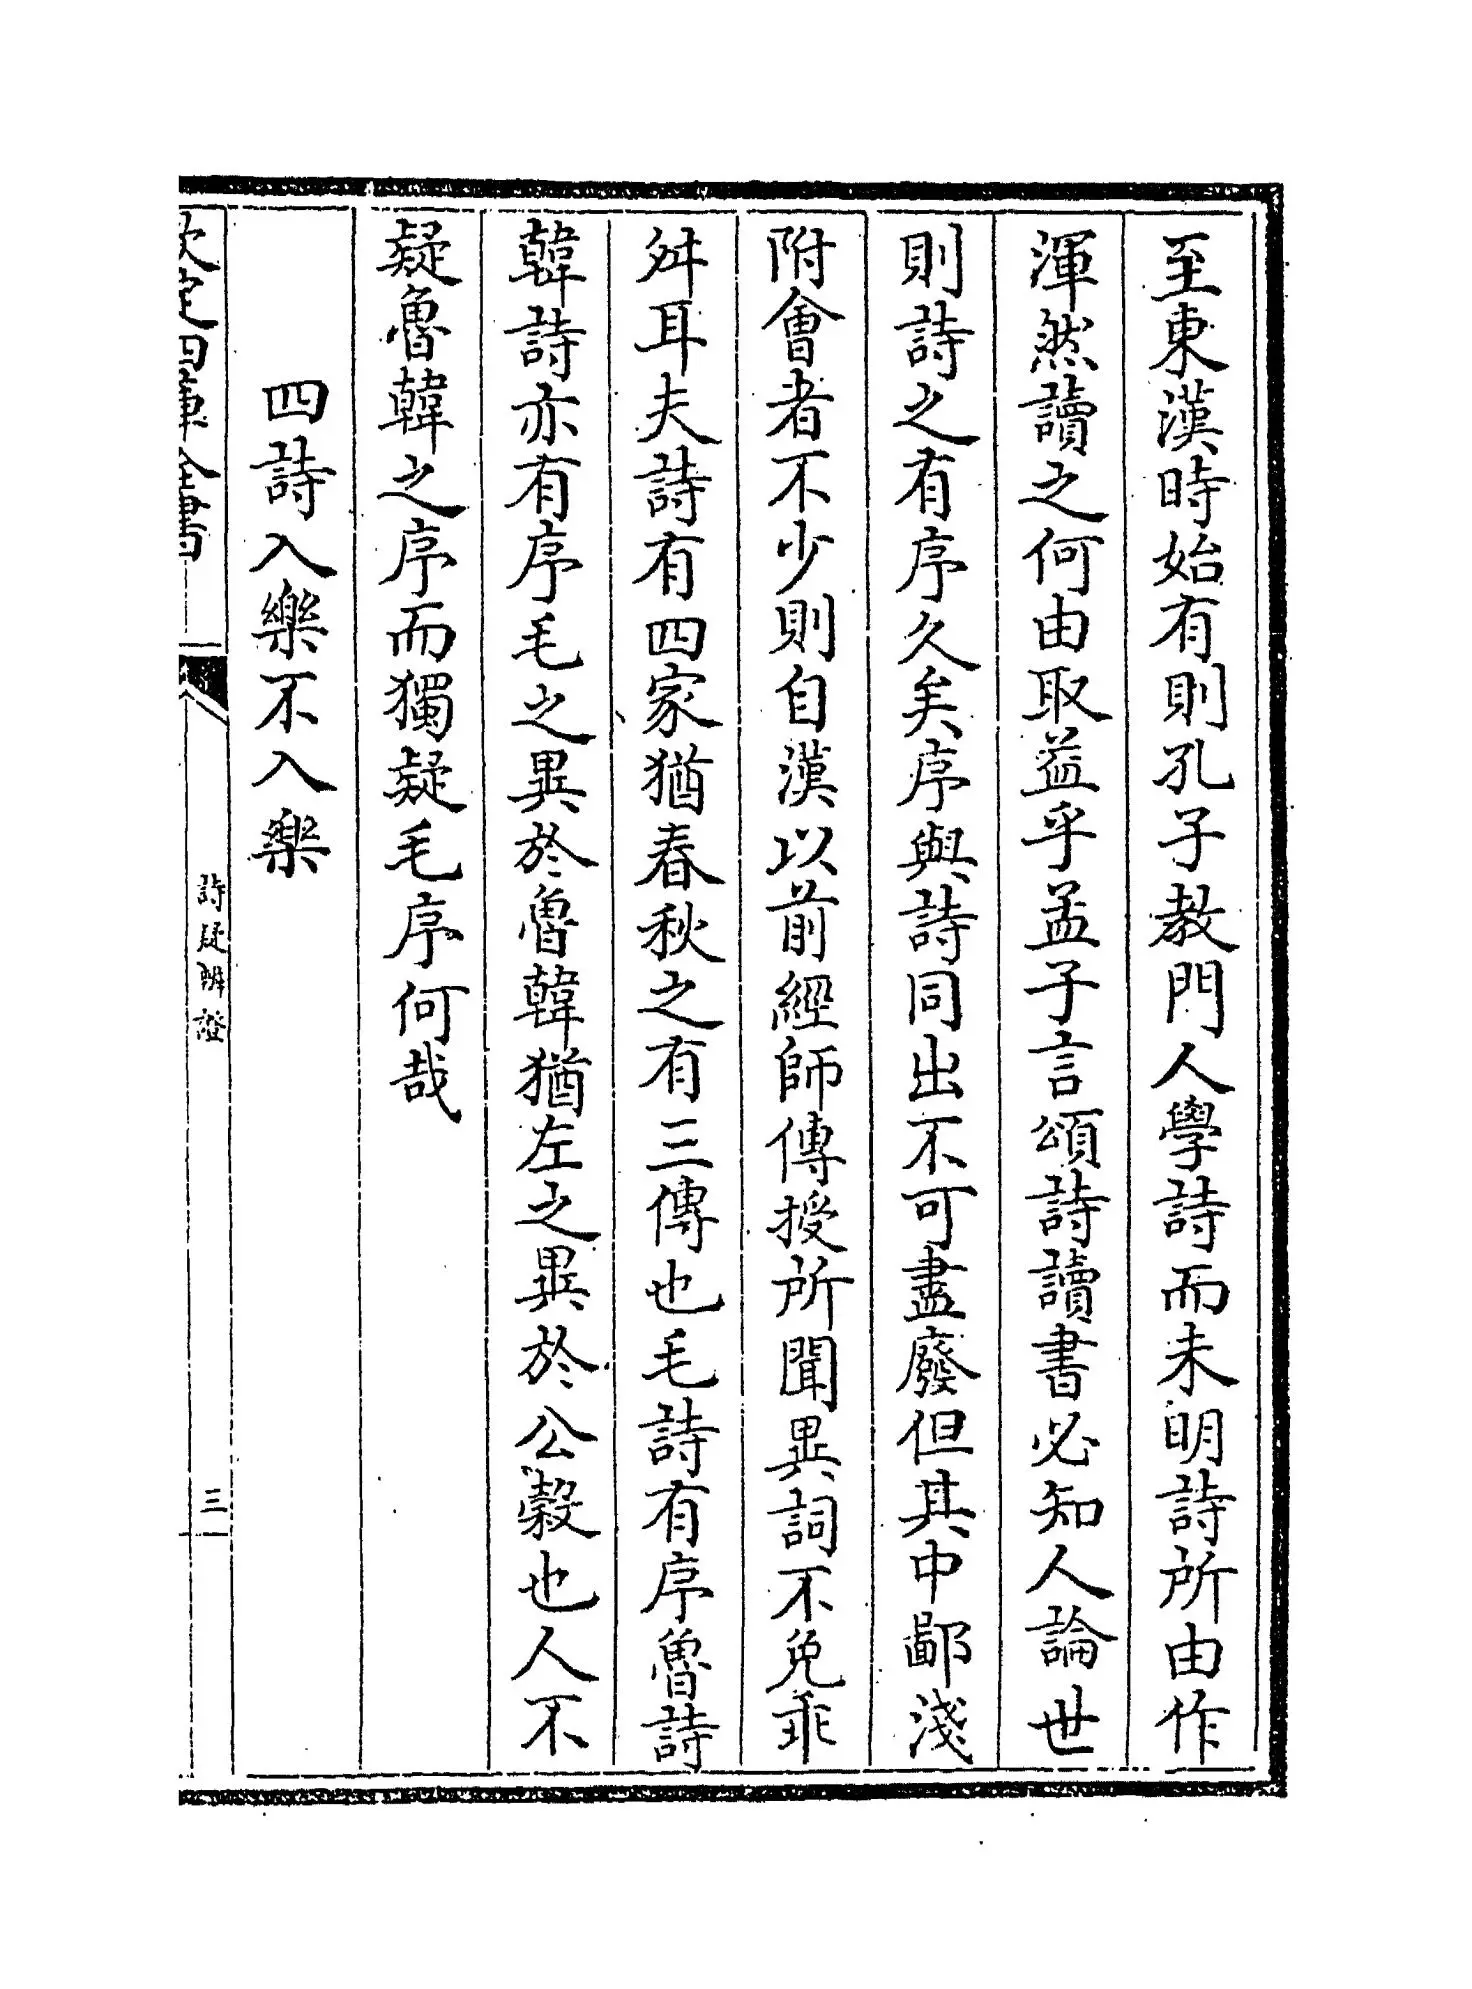 至東漢時始有則孔子教門人學詩而未明詩所由作
渾然讀之何由取益乎孟子言頌詩讀書必知人論世
則詩之有序久矣序與詩同出不可盡廢但其中鄙淺
附會者不少則自漢以前經師傳授所聞異詞不免乖
舛耳夫詩有四家猶春秋之有三傳也毛詩有序魯詩
韓詩亦有序毛之異於魯韓猶左之異於公榖也人不
疑魯韓之序而獨疑毛序何哉
四詩入樂不入樂
欽定四庫全書
詩疑辨證
三